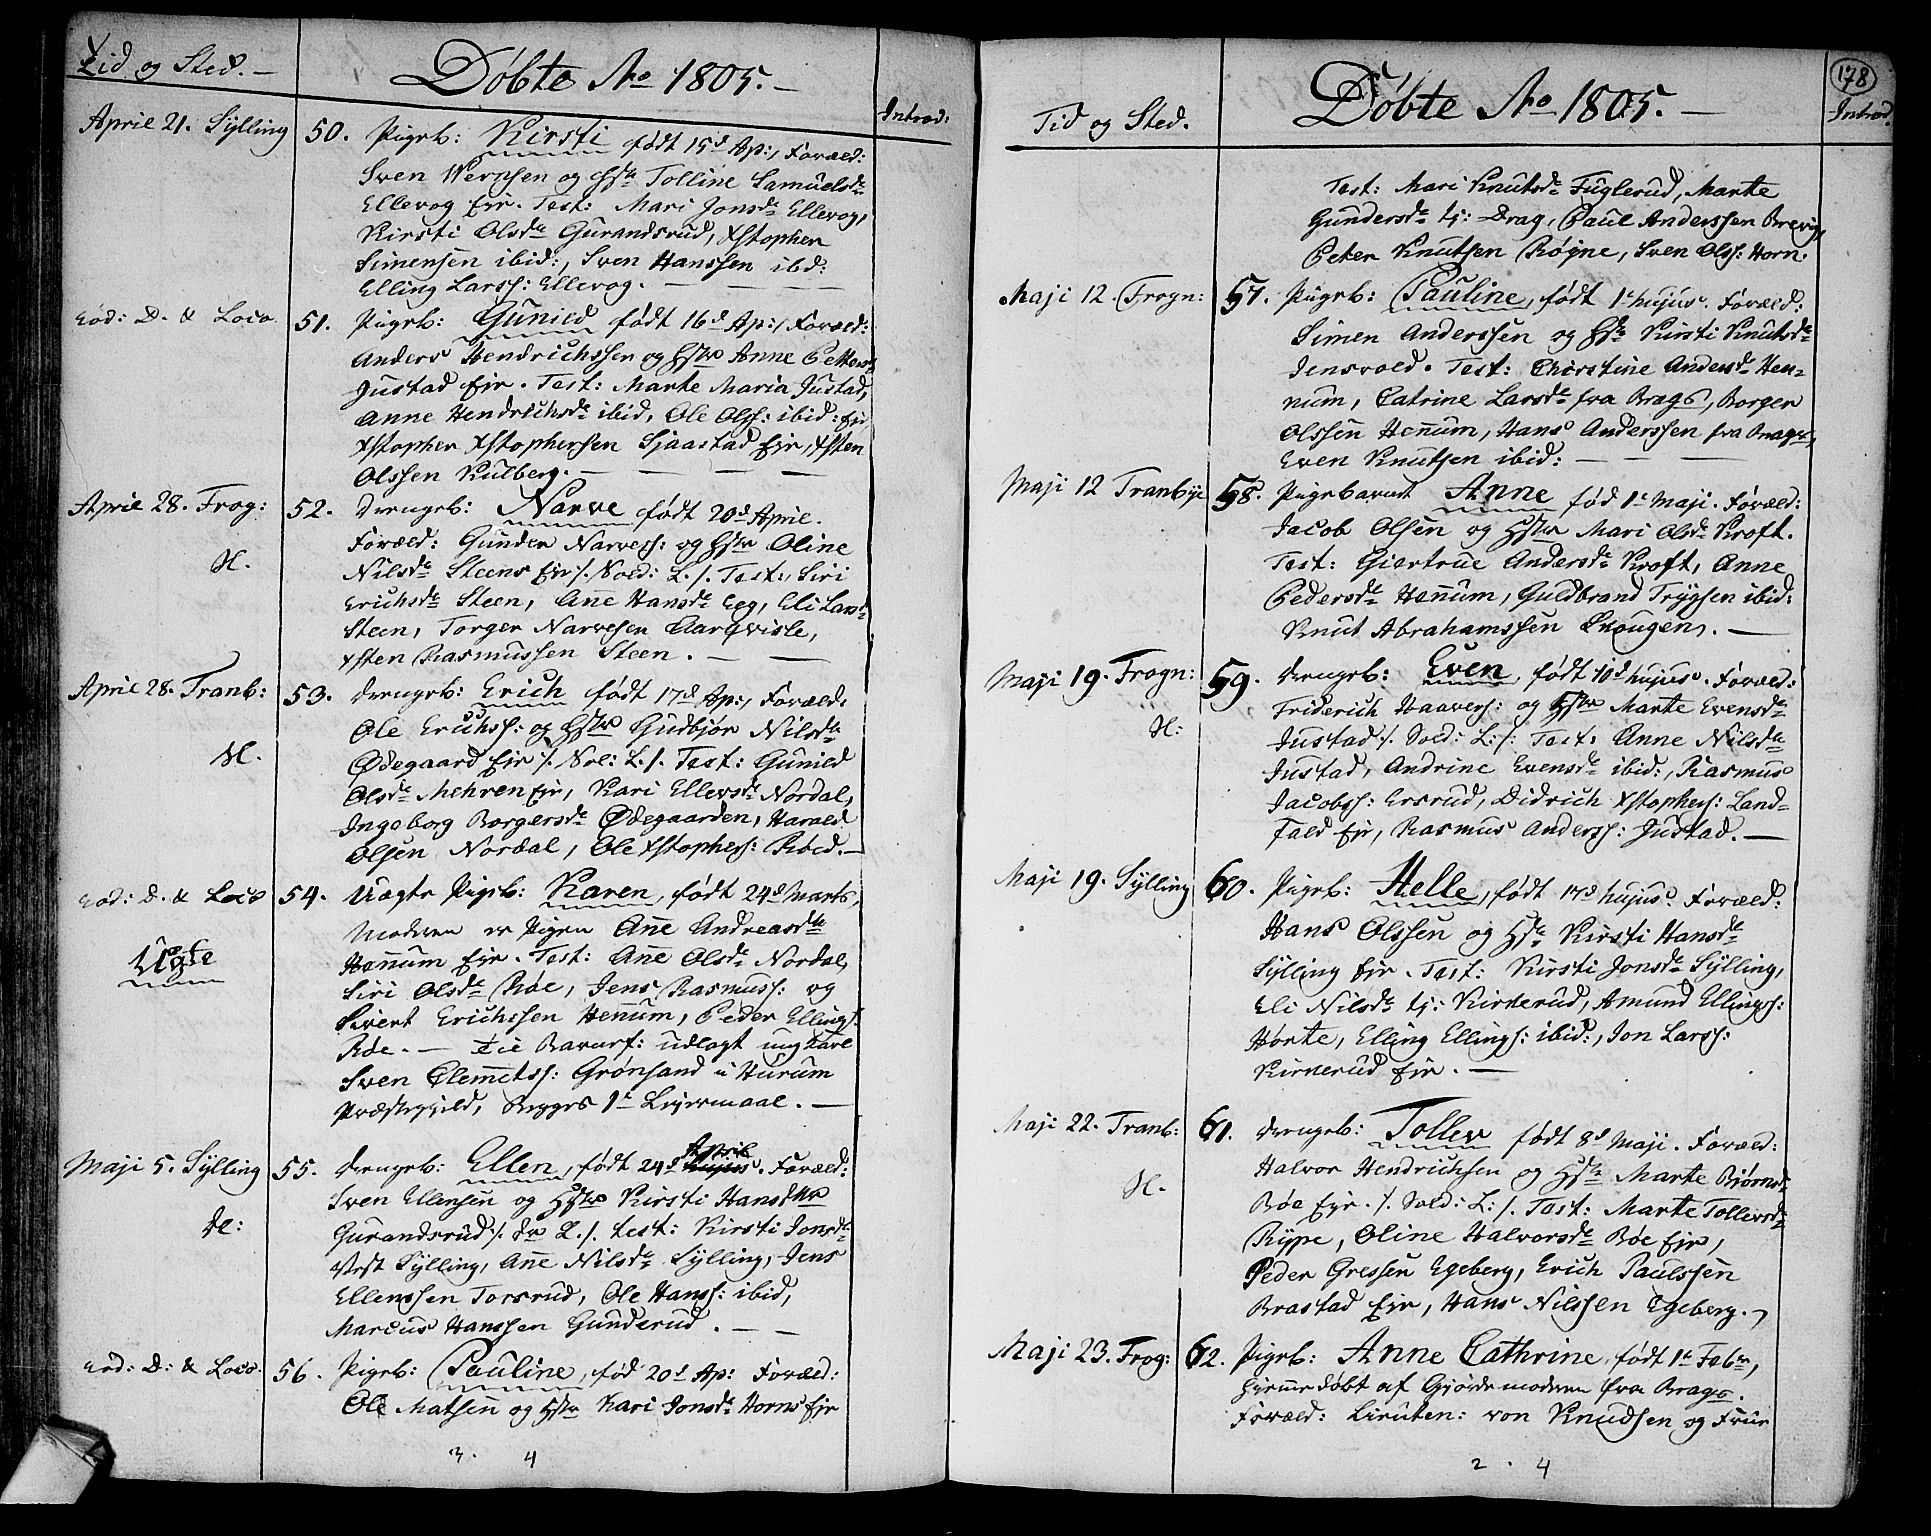 Tid og Sted. —
Døbte No 1805. —
Introd:
April 21. Sylling
50. Pigeb: Kirsti født 15d Ap:, Foræld:
Sven Wernsen og Hstr Tolline Samuelsdr
Ellevog Ejr. Test: Mari Jonsdr Ellevog,
Kirsti Olsdr Gurandsrud, Xstopher
Simensen ibid:, Sven Hanssen ibd:
Elling Larss: Ellevog. —
Eod: D. & Loco
51. Pigeb: Gunild født 16d Ap:, Foræld:
Anders Hendrichssen og Hstr Anne Petters
Justad Ejr. Test: Marte Maria Justad,
Anne Hendrichsdr ibid, Ole Olss: ibid: Ejr
Xstopher Xstophersen Sjaastad Ejr, Xsten
Olssen Kulberg. —
April 28. Frog:
52. Drengeb: Narve født 20d April.
Foræld: Gunder Narvess: og Hstr Oline
H.
Nilsdr Steens Ejr ⁒ Sold: L. ⁒ Test:, Siri
Erichsdr Steen, Ane Hansdr Eeg, Eli Larsdr
Steen, Torger Narvesen Aarqvisle,
Xsten Rasmussen Steen. —
April 28. Tranb:
53. Drengeb: Erich født 17d Ap:, Foræld:
Ole Erichss: og Hstr Gudbjør Nilsdr
H.
Ødegaard Ejr ⁒ Sol: L. ⁒ Test: Gunild
Olsdr Mehren Ejr, Kari Ellevsdr Nordal,
Ingeborg Borgersdr Ødegaarden, Harald
Olsen Nordal, Ole Xstophers: Röed. —
Eod: D. & Loco
54. Uægte Pigeb: Karen, født 24d Marts,
Moderen er Pigen Ane Andreasdr
Uægte
Hennum Ejr. Test: Ane Olsdr Nordal,
Siri Olsdr Röe, Jens Rasmuss: og
Sivert Erichssen Hennum, Peder Ellings:
Röe. — Til Barnef: udlagt ungkarl
Sven Clemets: Grønsand i Hurum
Præstegield, Begges 1te Leiermaal. —
Maji 5. Sylling
55. Drengeb: Ellen, født 24d April. Foræld:
Sven Ellensen og Hstr Kirsti Hansdtr
H:
Gurandsrud ⁒ L. ⁒ test: Kirsti Jonsdr
Vest Sylling, Ane Nilsdr Sylling, Jens
Ellenssen Torsrud, Ole Hanss: ibid,
Marcus Hanssen Gunderud. —
Eod: D: & Loco:
56. Pigeb: Pauline, fød 20d Ap: Foræld:
Ole Matsen og Hstr Kari Jonsdr Horns Ejr
3. 4
178
Tid og Sted.
Døbte No 1805. —
Introd.
Test: Mari Knutsdr Fuglerud, Marte
Gundersdr tj: Drag, Paul Anderssen Brevig,
Peter Knutsen Røgne, Sven Olss: Horn.
Maji 12. Frogn:
57. Pigeb: Pauline, født 1e hujus. Foræld:
Simen Anderssen og Hstr Kirsti Knutsdr
Jensvold. Test: Christine Andersdr Hen-
num, Catrine Larsdr fra Brags, Borger
Olssen Henum, Hans Anderssen fra Brags,
Even Knutsen ibid: —
Maji 12 Tranbye
58. Pigebarnet Anne fød 1e Maji. Foræld:
Jacob Olsen og Hstr Mari Olsdr Kroft.
Test: Giertrue Andersdr Kroft, Anne
Pedersdr Henum, Guldbrand Trygsen ibid:
Knut Abrahamssen Skougen. —
Maji 19. Frogn:
59. Drengeb: Even, født 10d hujus. Foræld:
Friderich Haavers: og Hstr Marte Evensdr
H:
Justad ⁒ Sold: L: ⁒ Test: Anne Nilsdr
Justad, Andrine Evensdr ibid:, Rasmus
Jacobss: Ersrud, Didrich Xstophers: Land-
fald Ejr, Rasmus Anderss: Justad. —
Maji 19. Sylling
60. Pigeb: Helle, født 17d hujus. Foræld:
Hans Olssen og Hstr Kirsti Hansdr
Sylling Ejr. Test: Kirsti Jonsdr Sylling,
Eli Nilsdr tj: Kirkerud, Amund Ellings:
Hørte, Elling Ellings: ibid:, Jon Larss:
Kirkerud Ejr. —
Maji 22. Tranb:
61. Drengeb: Tollev født 8d Maji. Foræld:
Halvor Hendrichsen og Hstr Marte Bjørnsdr
H.
Böe Ejr. ⁒ Sold: L: ⁒ Test: Marte Tollevsdr
Rype, Oline Halvorsdr Böe Ejr,
Peder Gressen Egeberg, Erich Paulssen
Brastad Ejr, Hans Nilssen Egeberg. —
Maji 23. Frog:
62. Pigeb: Anne Cathrine, født 1te Febr,
hjemedøbt af Gjordemoderen fra Brags.
Foræld: Lieuten: von Knudsen og Frue
2. 4